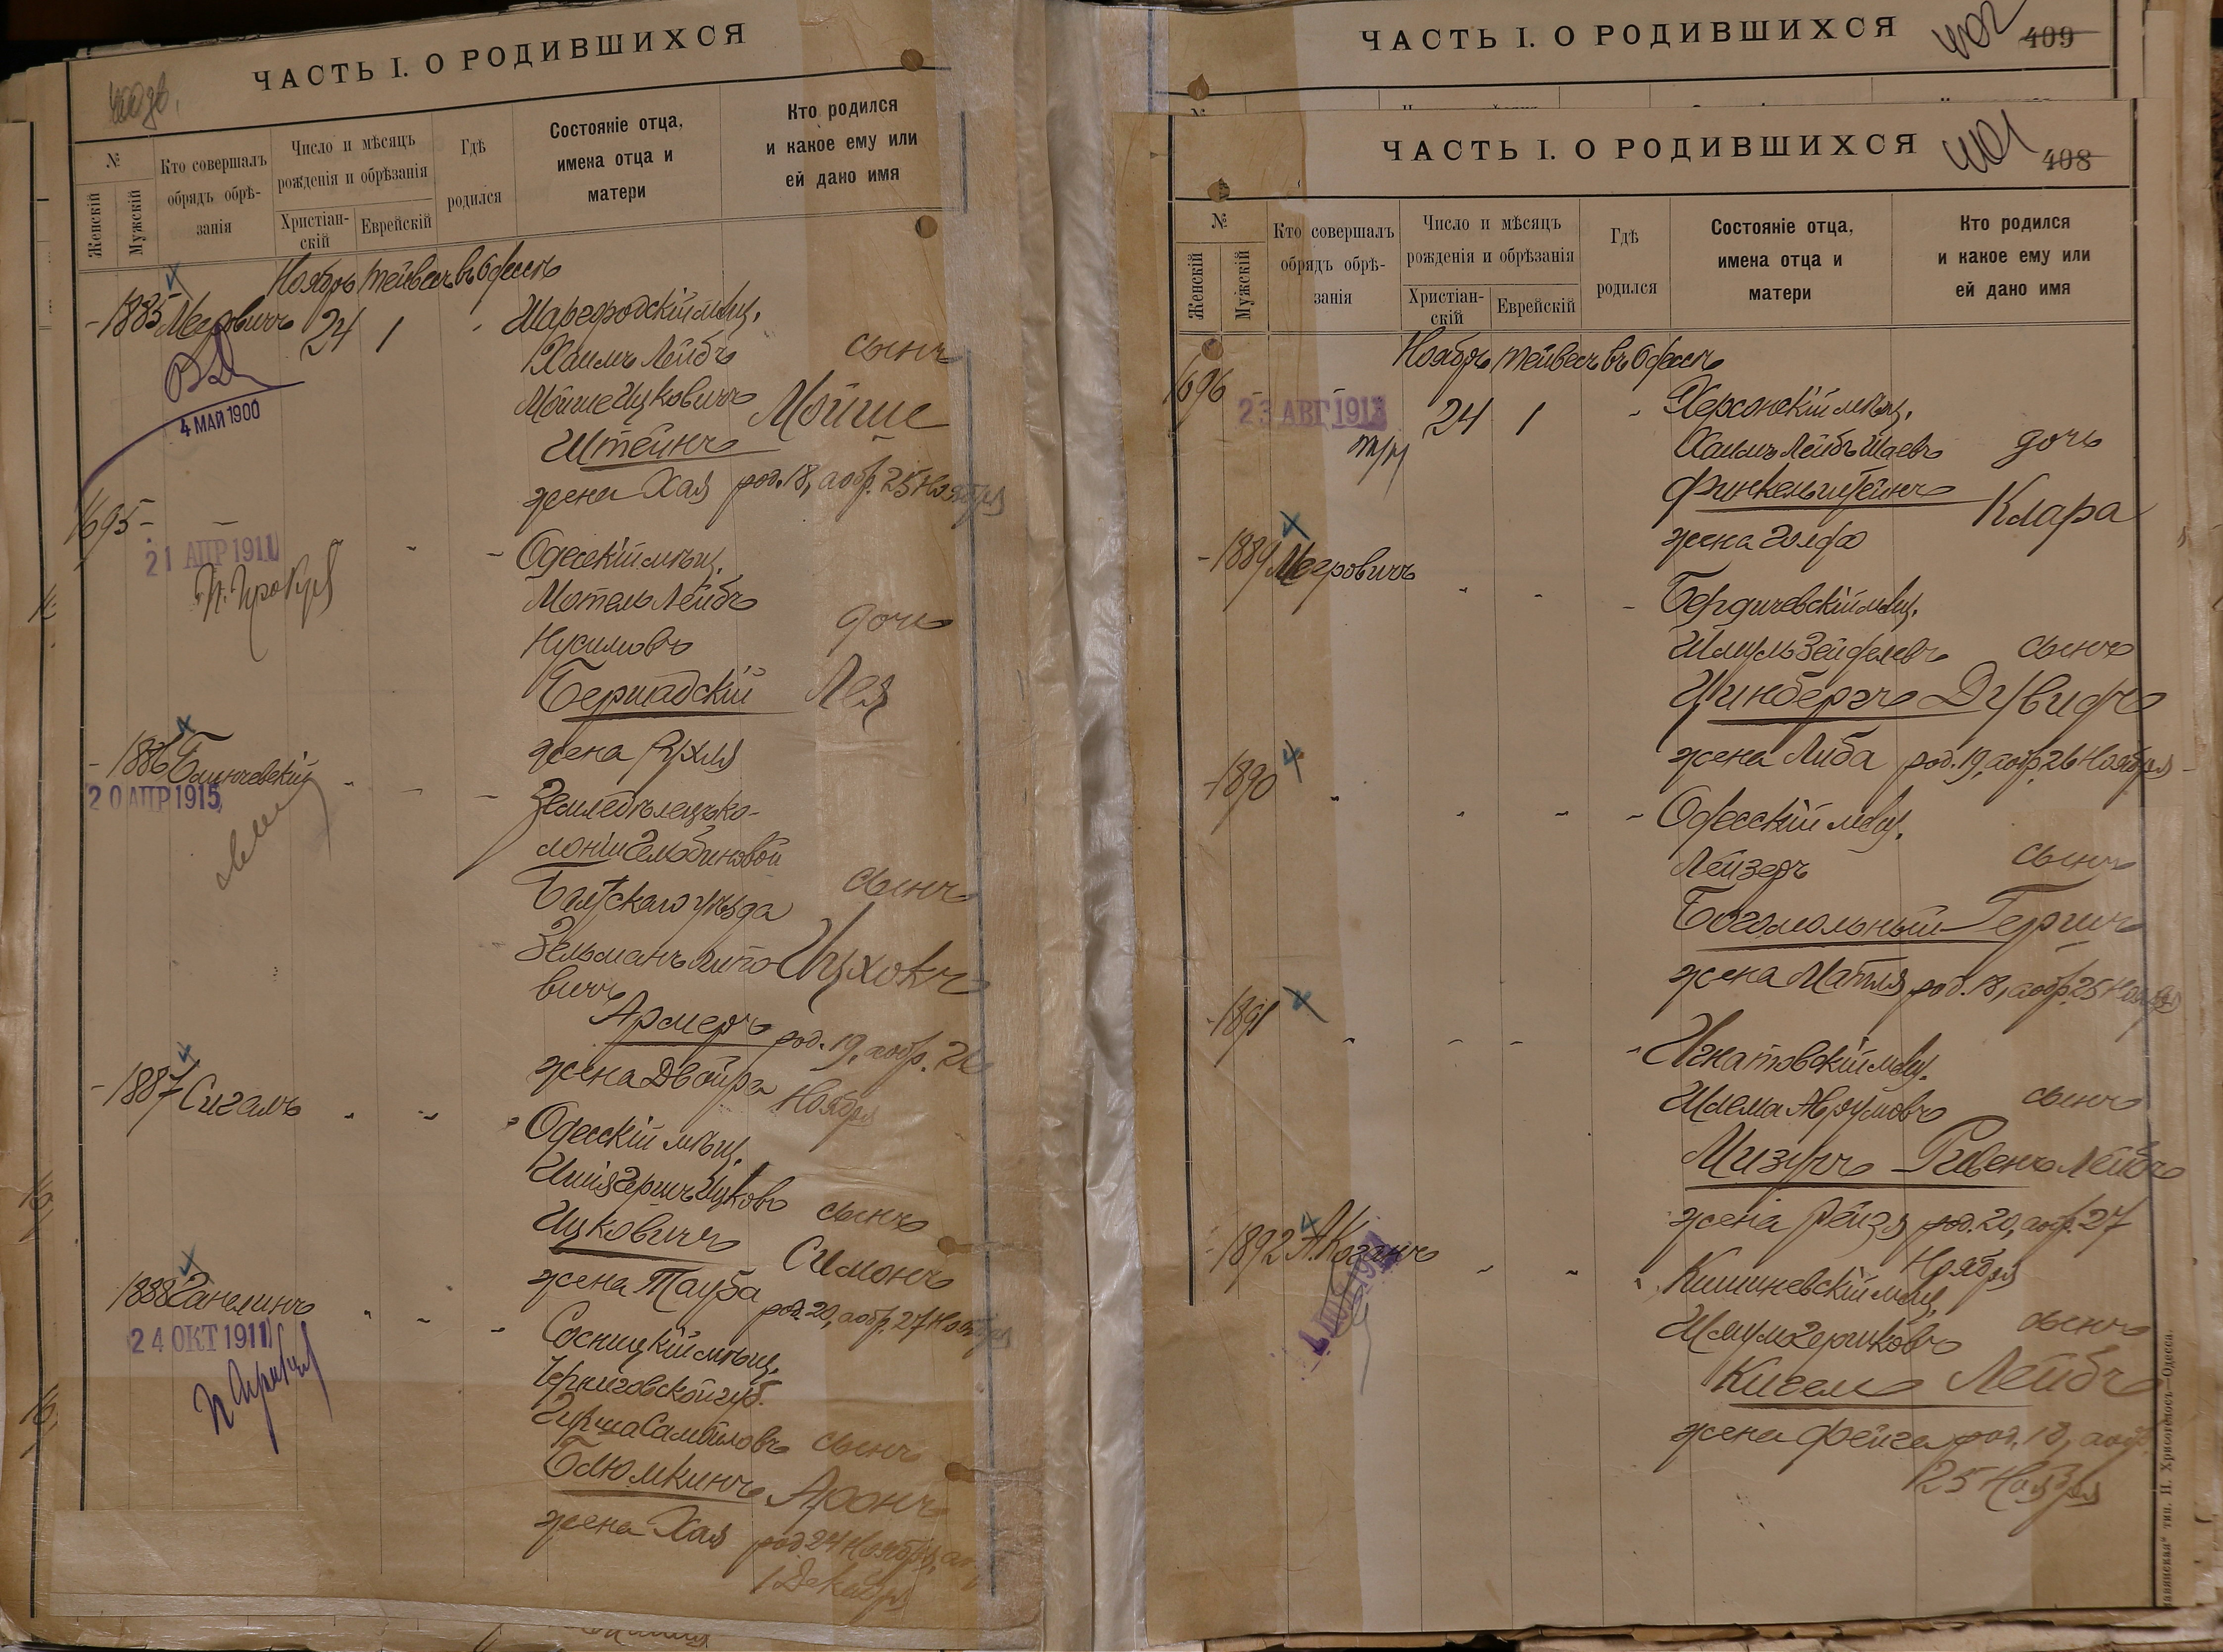 ЧАСТЬ I. О РОДИВШИХСЯ
№
Женскій
Мужскій
Кто совершалъ
обрядъ обрѣ-
занія
Число и мѣсяцъ
рожденія и обрѣзанія
Христіан-
скій
Еврейскій
Гдѣ
родился
Состояніе отца,
имена отца и
матери
Кто родился
и какое ему или
ей дано имя
Ноябрь Тейвесъ въ Одессѣ
1885 Меерович 24 1
Шаргородскій мѣщ.
Хаимъ Лейбъ сынъ
Мойше Ицковичъ Мойше
Штейнъ
жена Хая род. 18, а обр. 25 Ноября
4 МАЙ 1900
1695
21 АПР 1911
Одесскій мѣщ.
Мотель Лейбъ
Нусимовъ дочь
Бершадскій Лея
жена Рухля
1886
20 АПР 1915
Земледѣлецъ ко-
лоніи
Балтскаго уѣзда сынъ
Зельманъ Ицхокъ
вичъ
Армеръ род. 19, а обр. 26
жена Двойра Ноября
1887 Сигалъ
Одесскій мѣщ.
Ицковъ сынъ
Ицковичъ Симонъ
жена Тауба род. 20, а обр. 27 Ноября
1888 Ганелинъ
24 ОКТ 1911
Сосницкій мѣщ.
Черниговской губ.
Гирша Самойловъ сынъ
Блюмкинъ Аронъ
жена Хая род 24 Ноября, а
1 Декабря
ЧАСТЬ I. О РОДИВШИХСЯ
402 409
ЧАСТЬ I. О РОДИВШИХСЯ
401 408
№
Женскій
Мужскій
Кто совершалъ
обрядъ обрѣ-
занія
Число и мѣсяцъ
рожденія и обрѣзанія
Христіан-
скій
Еврейскій
Гдѣ
родился
Состояніе отца,
имена отца и
матери
Кто родился
и какое ему или
ей дано имя
Ноябрь Тейвесъ въ Одессѣ
1696 24 1
23 АВГ 1913
Херсонскій мѣщ.
Хаимъ Лейбъ Шаевъ дочь
Финкельштейнъ Клара
жена Голда
1889 Меерович
Бердичевскій мѣщ.
Шмуль Зейделевъ сынъ
Гринбергъ Дувидъ
жена Либа род. 19, а обр. 26 Ноября
1890
Одесскій мѣщ.
Лейзеръ сынъ
Богомольный Гершъ
жена Матля род. 18, а обр. 25 Ноября
1891
Игнатовскій мѣщ.
Шлема Аврумовъ сынъ
Мизучъ Рувенъ Лейбъ
жена Рейзя род. 20, а обр. 27
Ноября
1892 А. Коганъ
Кишиневскій мѣщ.
Шмуль Гершковъ сынъ
Кигель Лейбъ
жена Фейга род. 18, а обр.
25 Ноября
тип. Н. Хрисогелосъ—Одесса.